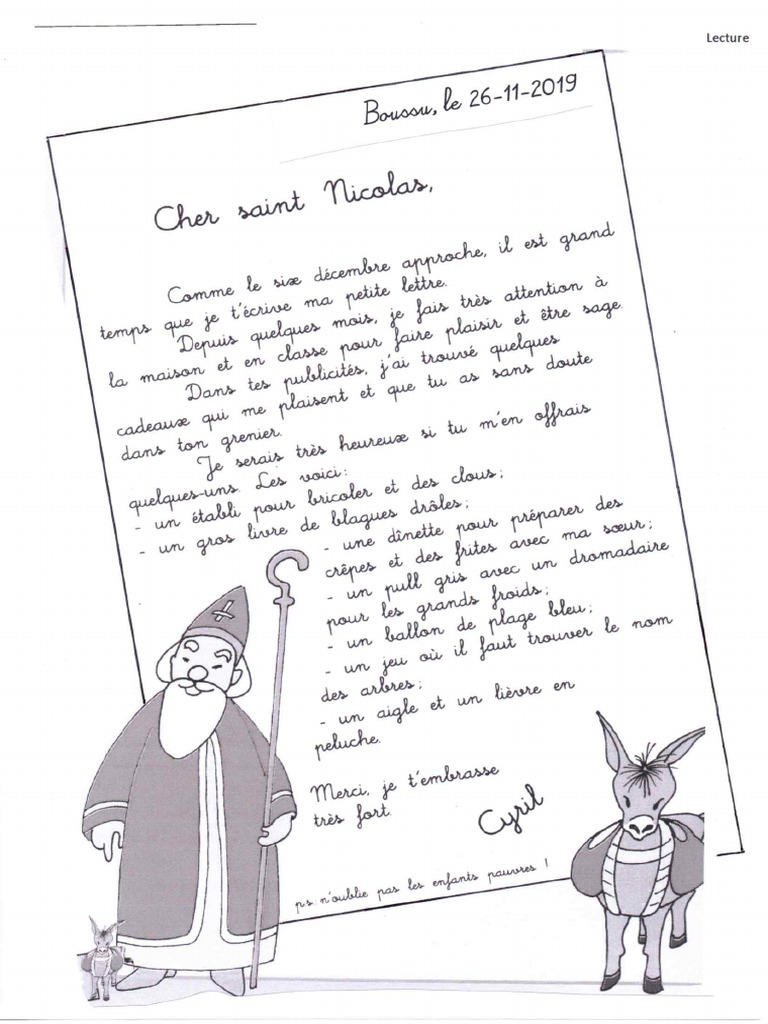 Lecture
Boussu, le 26-11-2019
Cher saint Nicolas,
Comme le six décembre approche, il est grand
temps que je t'écrive ma petite lettre.
Depuis quelques mois, je fais très attention à
la maison et en classe pour faire plaisir et être sage.
Dans tes publicités, j'ai trouvé quelques
cadeaux qui me plaisent et que tu as sans doute
dans ton grenier.
Je serais très heureux si tu m'en offrais
quelques-uns. Les voici :
- un établi pour bricoler et des clous ;
- un gros livre de blagues drôles ;
- une dînette pour préparer des
crêpes et des frites avec ma sœur ;
- un pull gris avec un dromadaire
pour les grands froids ;
- un ballon de plage bleu ;
- un jeu où il faut trouver le nom
des arbres ;
- un aigle et un lièvre en
peluche.
Merci, je t'embrasse
très fort.
Cyril
ps: n'oublie pas les enfants pauvres !